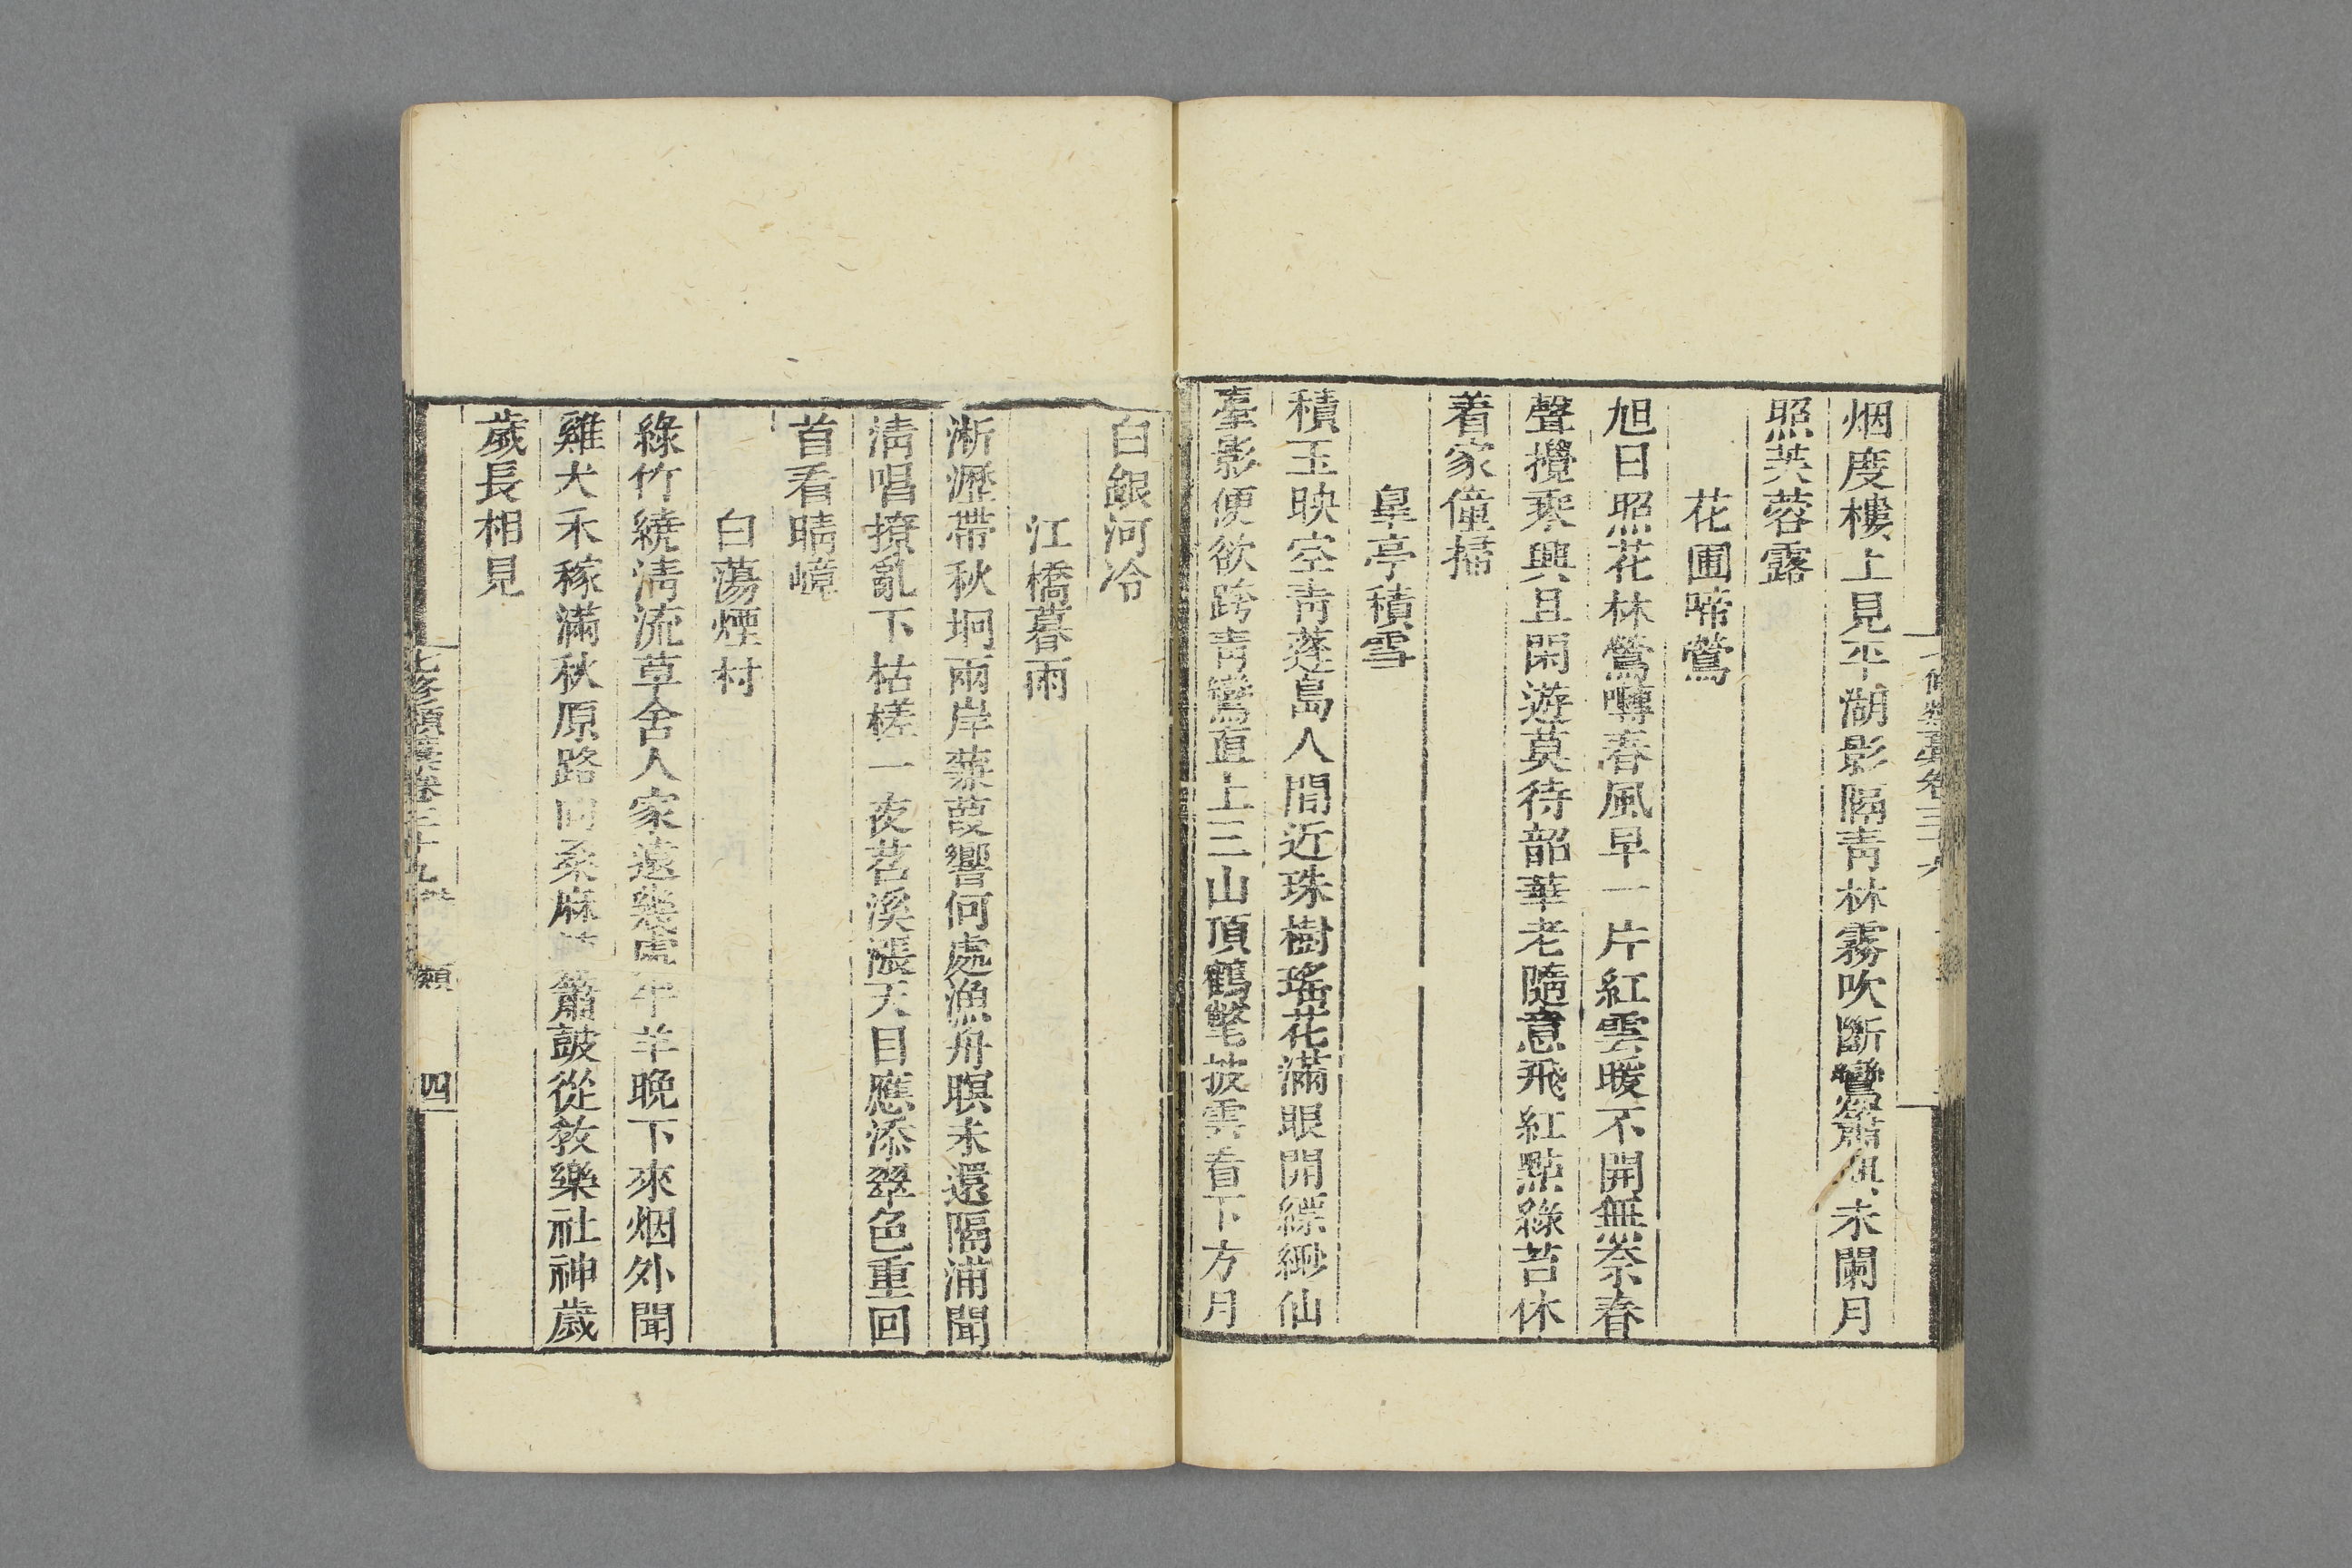 烟度樓上見平湖影隔青林霧吹斷鸞簫未闌月
照芙蓉露
花圃啼鶯
旭日照花林鶯囀春風早一片紅雲暖不開無奈春
聲攪乘興且閑遊莫待韶華老隨意飛紅點綠苔休
着家僮掃
皐亭積雪
積玉映空青蓬島人間近珠樹瑤花滿眼開縹緲仙
臺影便欲跨青鸞直上三山頂鶴氅披雲看下方月
白銀河冷
江橋暮雨
淅瀝帶秋坰兩岸蒹葭響何處漁舟暝未還隔浦聞
清唱撩亂下枯槎一夜苕溪漲天目應添翠色重回
首看晴嶂
白蕩煙村
綠竹繞清流草舍人家遠幾處牛羊晚下來烟外聞
雞犬禾稼滿秋原路向桑麻簫鼓從教樂社神歲
歲長相見
七修類藁卷三十九 類 四